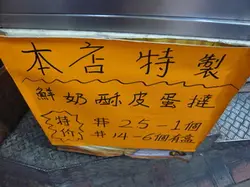 本店特製
鮮奶酥皮蛋撻
特价 # 25-1個
# 14-6個有盒